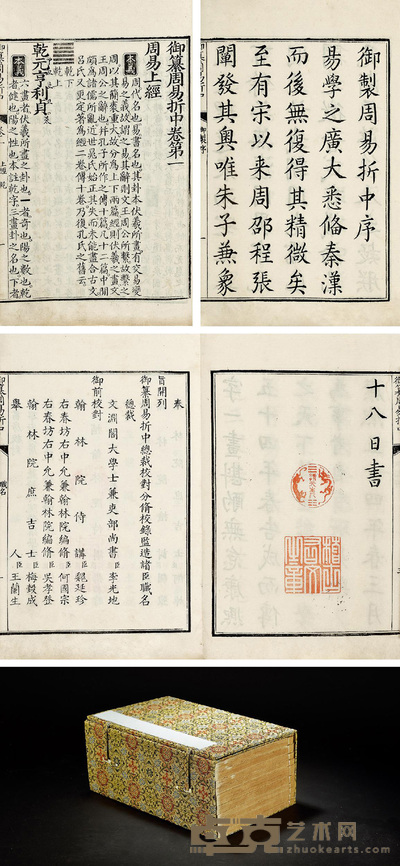 御製周易折中序
易學之廣大悉備秦漢
而後無復得其精微矣
至有宋以來周邵程張
闡發其奧唯朱子兼象
御纂周易折中卷第一
周易上經
本義
周代名也易書名也其卦本伏羲所畫有交易變
易之義故謂之易其辭則文王周公所繫故繫之
周以其簡袠重大故分為上下兩篇經則伏羲之畫文
王周公之辭也并孔子所作之傳十篇凡十二篇中間
頗為諸儒所亂近世晁氏始正其失而未能盡合古文
呂氏又更定著為經二卷傳十卷乃復孔氏之舊云
乾下
乾上
乾元亨利貞
本義
六畫者伏羲所畫之卦也一者奇也陽之數也乾
者健也陽之性也本註乾字三畫卦之名也下者
十八日書
奉
旨開列
御纂周易折中總裁校對分脩校錄監造諸臣職名
總裁
文淵閣大學士兼吏部尚書臣李光地
御前校對
翰林院侍講臣魏廷珍
右春坊右中允兼翰林院編脩臣何國宗
右春坊右中允兼翰林院編脩臣吳孝登
翰林院庶吉士臣梅瑴成
舉人臣王蘭生
御纂周易折中
職名
艺术网
www.zhuokearts.com